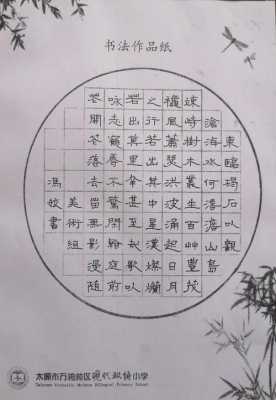 书法作品纸
東臨碣石以觀
滄海水何澹澹山島
竦峙樹木叢生百艸豐茂
穐風蕭瑟洪波涌起日月
之行若出其中星漢燦爛
若出其里幸甚至哉歌以
咏志寵辱不驚閒看庭前
花開花落去留無影漫隨
美術組
書
太原市万柏林区现代双语小学
Taiyuan Wanbolin Modern Bilingual Primary School